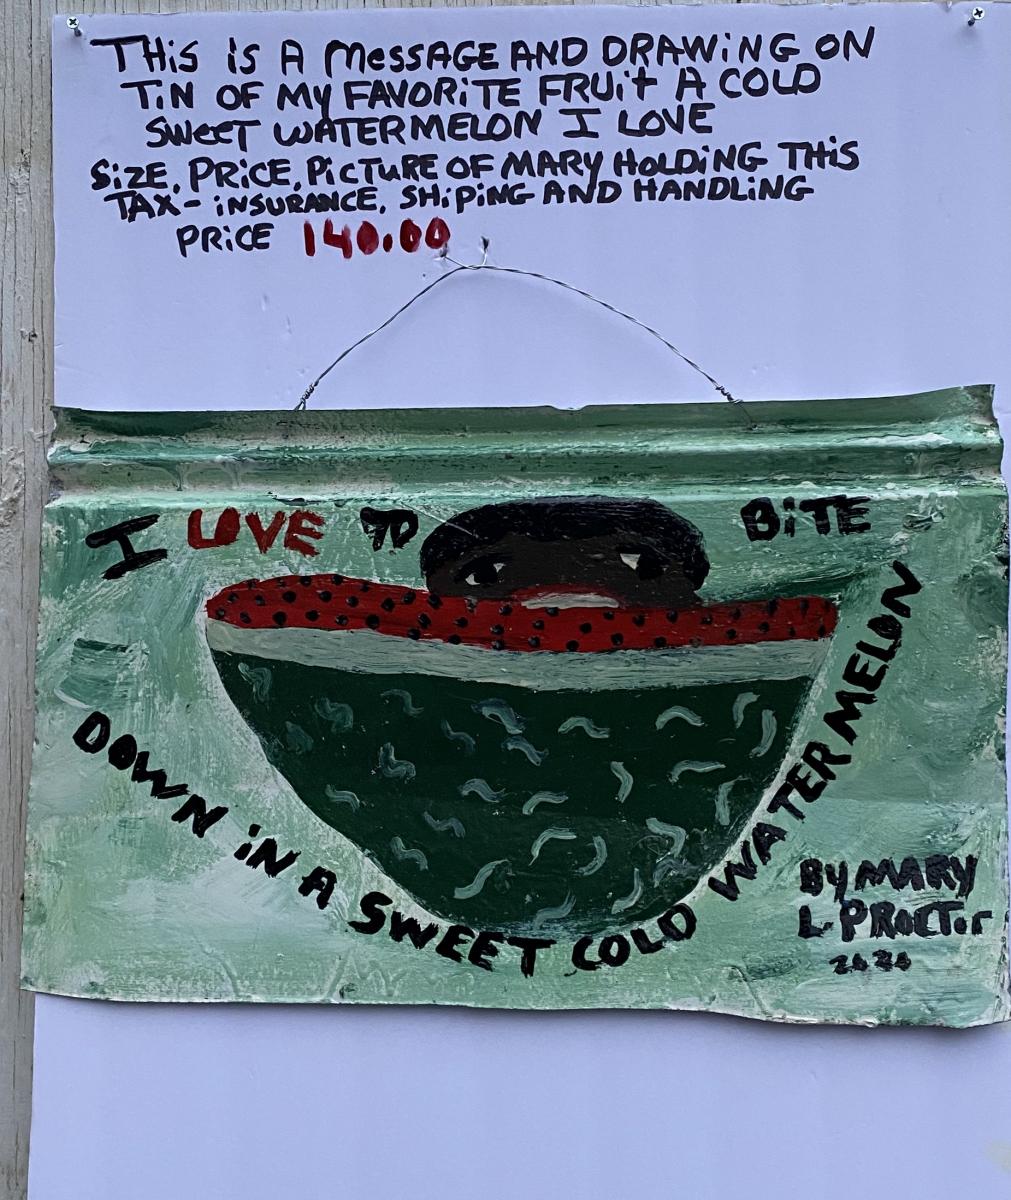 THiS iS A MeSSAGE AND DRAWiNG ON
TiN OF My FAVORiTE FRUit A COLD
SWeeT WATERMELON I LOVE
SiZE, PRiCE, PiCTURE OF MARY HOLDiNG THiS
TAX- iNSURANCE, SHiPiNG AND HANDLiNG
PRiCE 140.00
I LOVE TO BiTE
DOWN iN A SWEET COLD WATERMELON
By MARY
L. PROCTor
2020